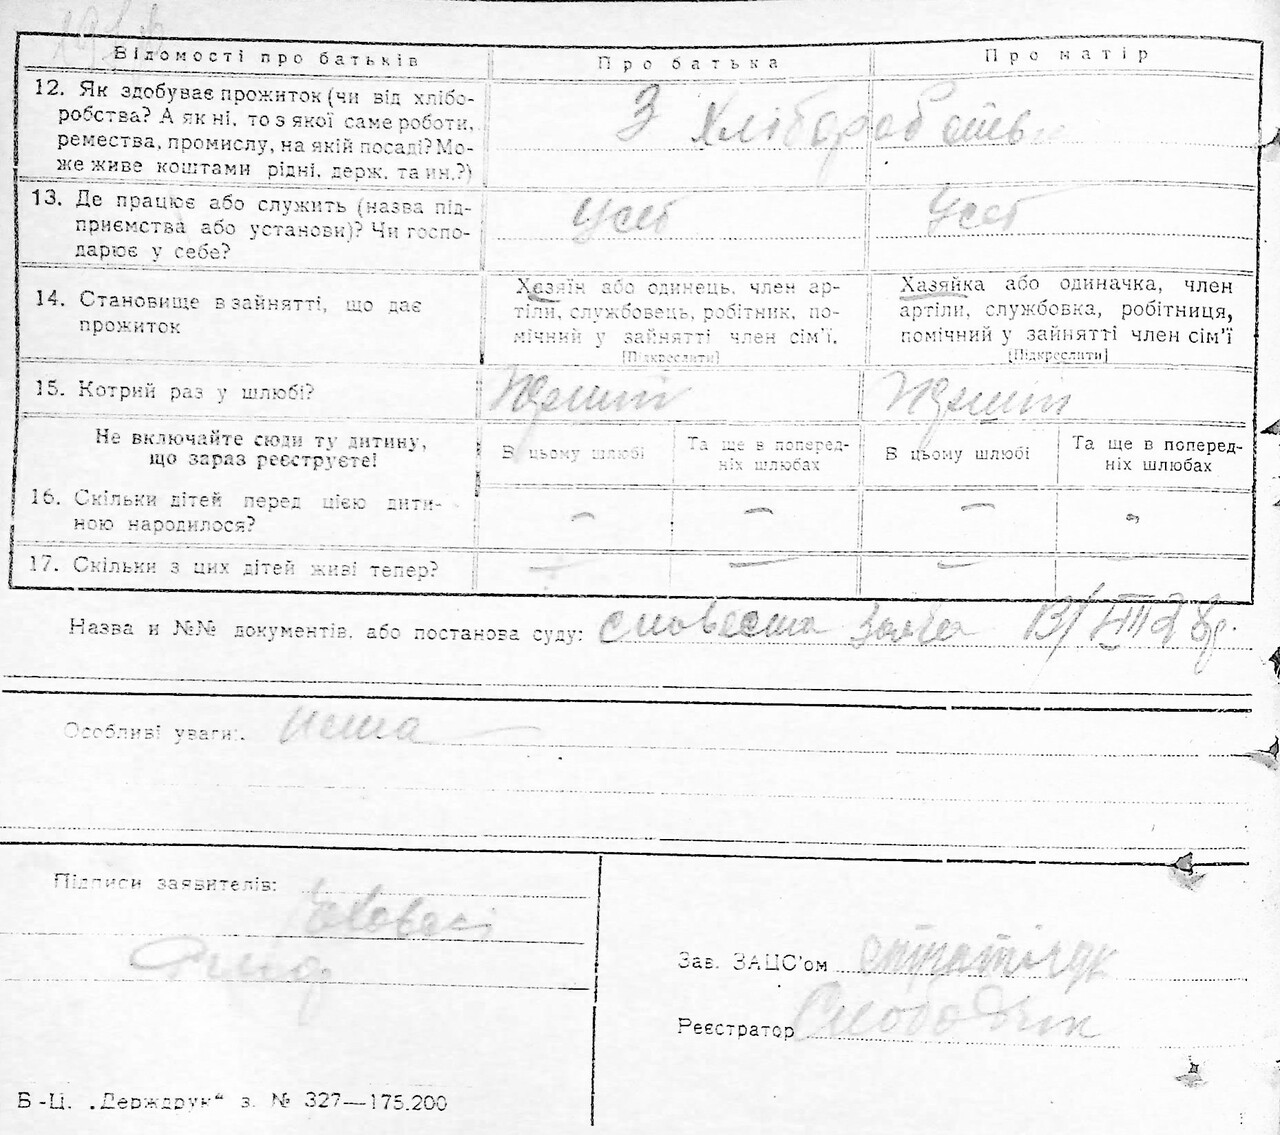 Відомості про батьків
Про батька
Про матір
12. Як здобуває прожиток (чи від хлібо-
робства? А як ні, то з якої саме роботи,
ремества, промислу, на якій посаді? Мо-
же живе коштами рідні, держ. та ин.?)
З Хліборобства
13. Де працює або служить (назва під-
приємства або установи)? Чи госпо-
дарює у себе?
У себ
У себ
14. Становище в зайнятті, що дає
прожиток
Хазяїн або одинець, член ар-
тіли, службовець, робітник, по-
мічний у зайнятті член сім'ї.
[Підкреслити]
Хазяйка або одиначка, член
артіли, службовка, робітниця,
помічний у зайнятті член сім'ї
[Підкреслити]
15. Котрий раз у шлюбі?
Не включайте сюди ту дитину,
що зараз реєструєте!
В цьому шлюбі
Та ще в поперед-
ніх шлюбах
В цьому шлюбі
Та ще в поперед-
ніх шлюбах
16. Скільки дітей перед цією дити-
ною народилося?
– – – –
17. Скільки з цих дітей живі тепер?
– – – –
Назва и №№ документів, або постанова суду: словесна заява 13/VIII 28р.
Особливі уваги: Нема
Підписи заявителів:
Зав. ЗАЦС'ом
Реєстратор Слободян
Б-Ц. „Держдрук“ з. № 327—175.200